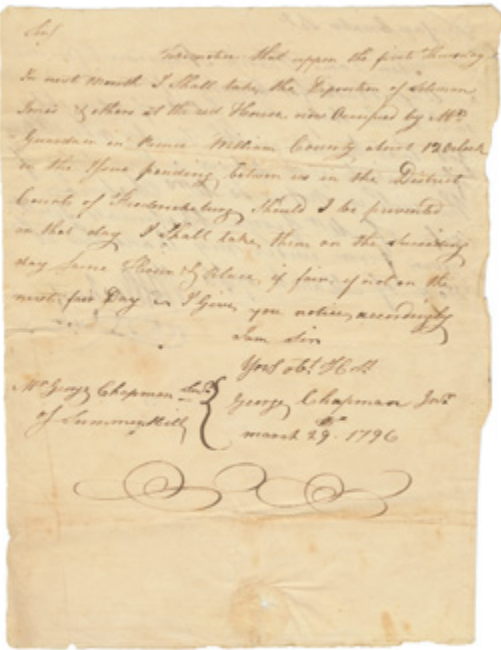 Sir
Take notice that uppon the first Thursday
In next Month I Shall take the Deposition of Soloman
Jones & others at the red House now Occupied by Mrs
Guardum in Prince William County about 12 Oclock
in the Issue pending between us in the District
Court of Fredericksburg Should I be prevented
on that day I Shall take them on the Suceeding
day Same Hour & Place if fair if not on the
next fair Day as I Give you notice accordingly
I am Sir
Yrs obt. H St
Mr George Chapman Senr.
George Chapman Junr
of Summer Hill
march 29. 1796